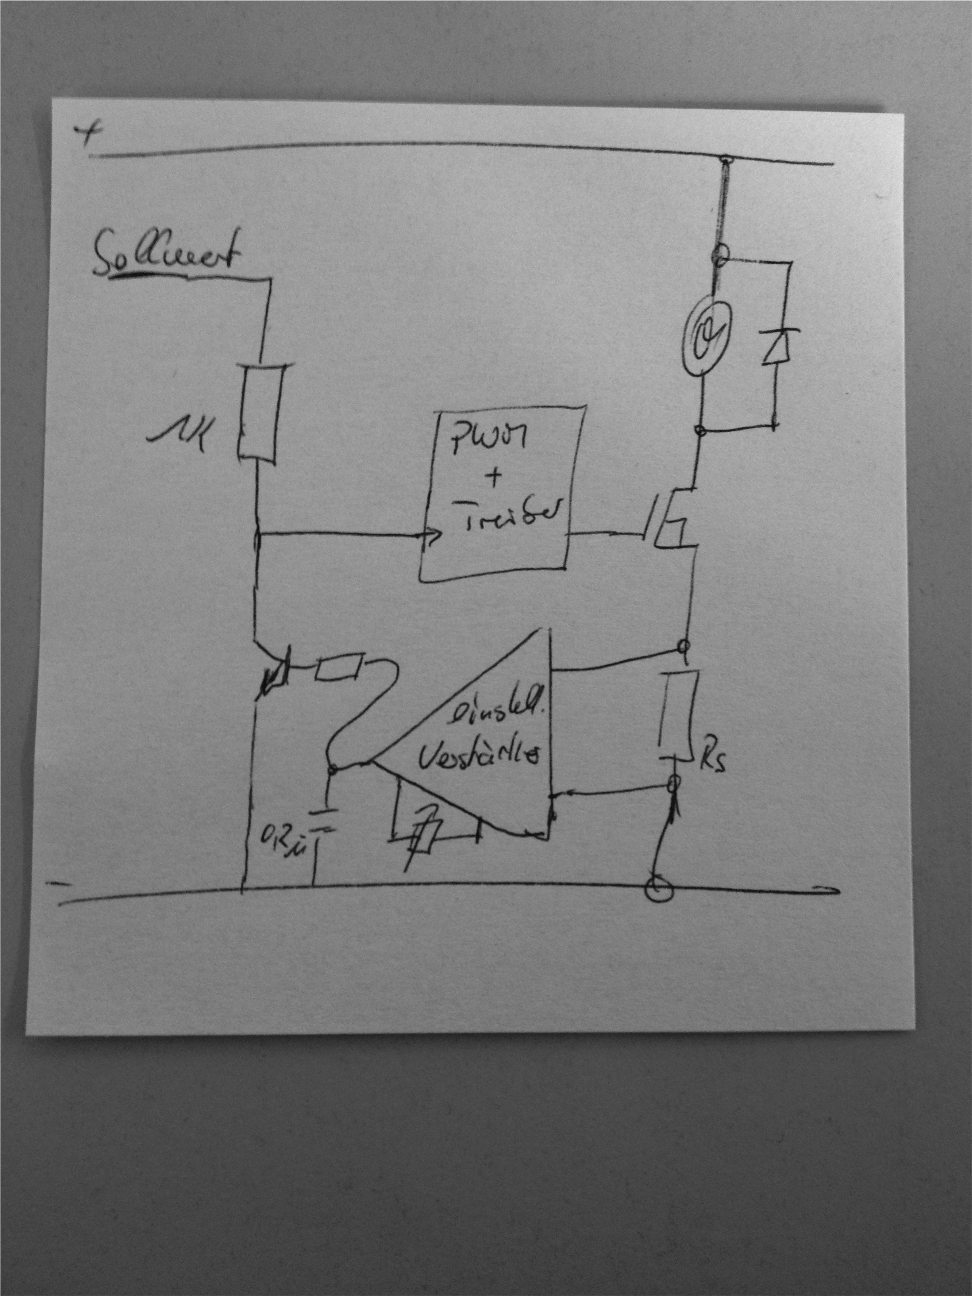 +
Sollwert
1K
PWM
+
Treiber
einstell.
Verstärker
Rs
0,2µ
-
-